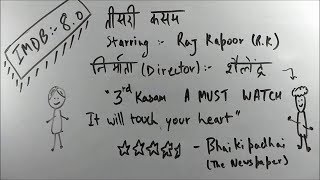 IMDB:- 8.0
तीसरी कसम
Starring :- Raj Kapoor (R.K.)
निर्माता (Director):- शैलेंद्र
"3rd Kasam A MUST WATCH
It will touch your heart"
- Bhai ki padhai
(The Newspaper)